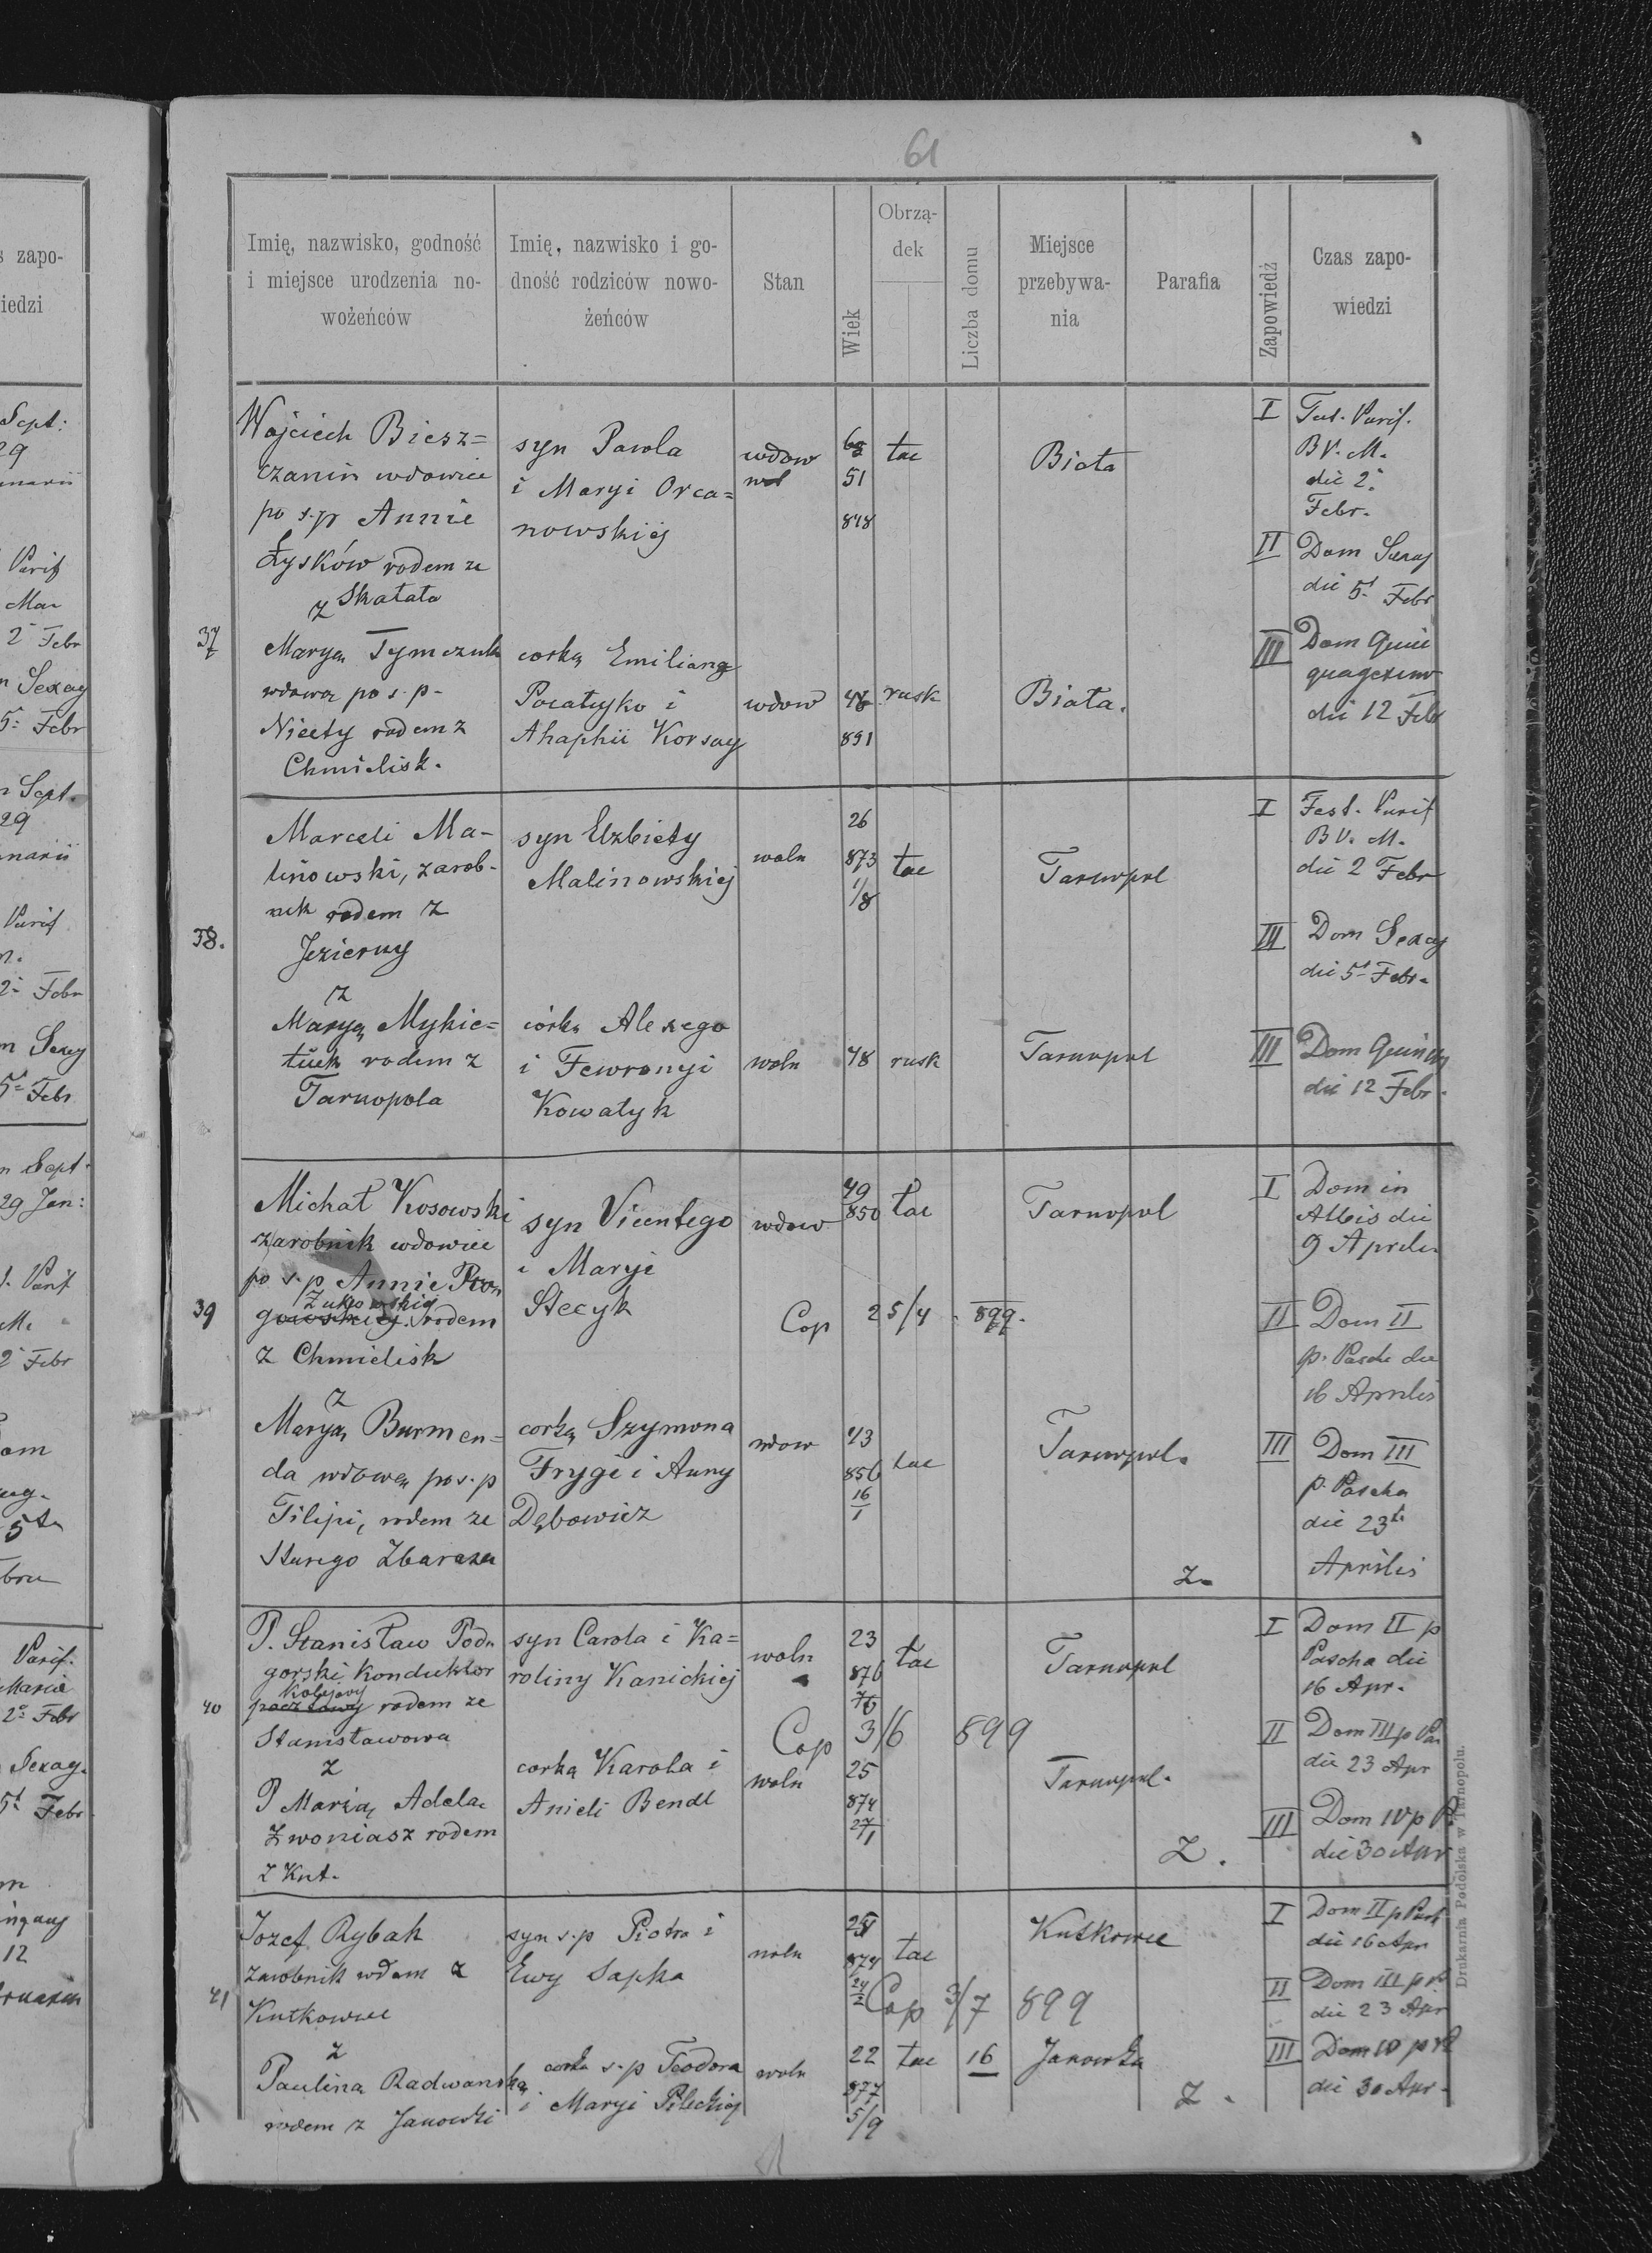 61
Imię, nazwisko, godność
i miejsce urodzenia no-
wożeńców
Imię, nazwisko i go-
dność rodziców nowo-
żeńców
Stan
Wiek
Obrzą-
dek
Liczba domu
Miejsce
przebywa-
nia
Parafia
Zapowiedź
Czas zapo-
wiedzi
37
Wojciech Biesz=
czanin wdowiec
po s.p Annie
Łysków rodem ze
Skałata
z
Marya Tymczuk
wdowa po s.p.
Nicety rodem z
Chmielisk.
syn Pawła
i Maryi Orca=
nowskiej
corka Emiliana
Pocatujko i
Ahaphii Korsay
wdow
wdow
51
848
48
851
łac
rusk
Biała
Biała.
I
Purif.
B V. M.
die 2
Febr.
II
Dom Sexag
die 5 Febr
III
Dom Quin
quagesim
die 12 Febr
38.
Marceli Ma-
linowski, zarob-
nik rodem z
Jezierny
z
Marya Mykie=
tiuk rodem z
Tarnopola
syn Elzbiety
Malinowskiej
córka Alexego
i Fewronyi
Kowalyk
woln
woln
26
873
1/8
48
łac
rusk
Tarnopol
Tarnopol
I
Fest. Purif
B V. M.
die 2 Febr
III
Dom Sexag
die 5 Febr.
III
Dom Quinqu
die 12 Febr.
39
Michał Kosowski
zarobnik wdowiec
po s.p Annie
Zukowskiej
rodem
z Chmielisk
z
Marya Burmen=
da wdowa po s.p
Filipi, rodem ze
Starego Zbaraza
syn Vicentego
i Maryi
Stecyk
corka Szymona
Fryge i Anny
Dębowicz
wdow
wdow
49
850
Cop 25/4 . 899.
43
856
16
1
łac
łac
Tarnopol
Tarnopol.
Z.
I
Dom in
Albis die
9 Aprilis
II
Dom II
p. Pasch die
16 Aprilis
III
Dom III
p. Pascha
die 23
Aprilis
40
P. Stanisław Pod-
gorski Konduktor
kolejowy
pocztowy rodem ze
Stanisławowa
z
P Maria Adela
Zwoniasz rodem
z Kut.
syn Carola i Ka=
roliny Kanickiej
corka Karola i
Anieli Bendl
woln
woln
23
876
Cop 3/6 899
25
874
27/1
łac
Tarnopol
Tarnopol.
Z.
I
Dom II p
Pascha die
16 Apr.
II
Dom III p Pa
die 23 Apr
III
Dom IV p P
die 30 Apr
41
Jozef Rybak
zarobnik rodem z
Kutkowiec
z
Paulina Radwanska
rodem z Janowki
syn s.p Piotra i
Ewy Sapka
corka s.p Teodora
i Maryi Pileckiej
woln
woln
874
24
2
Cop 3/7 899
22
877
5/9
łac
łac
16
Kutkowce
Janowka
Z.
I
Dom II p Pasch
die 16 Apr
II
Dom III p P
die 23 Apr
III
Dom IV p P
die 30 Apr.
Drukarnia Podolska w Tarnopolu.